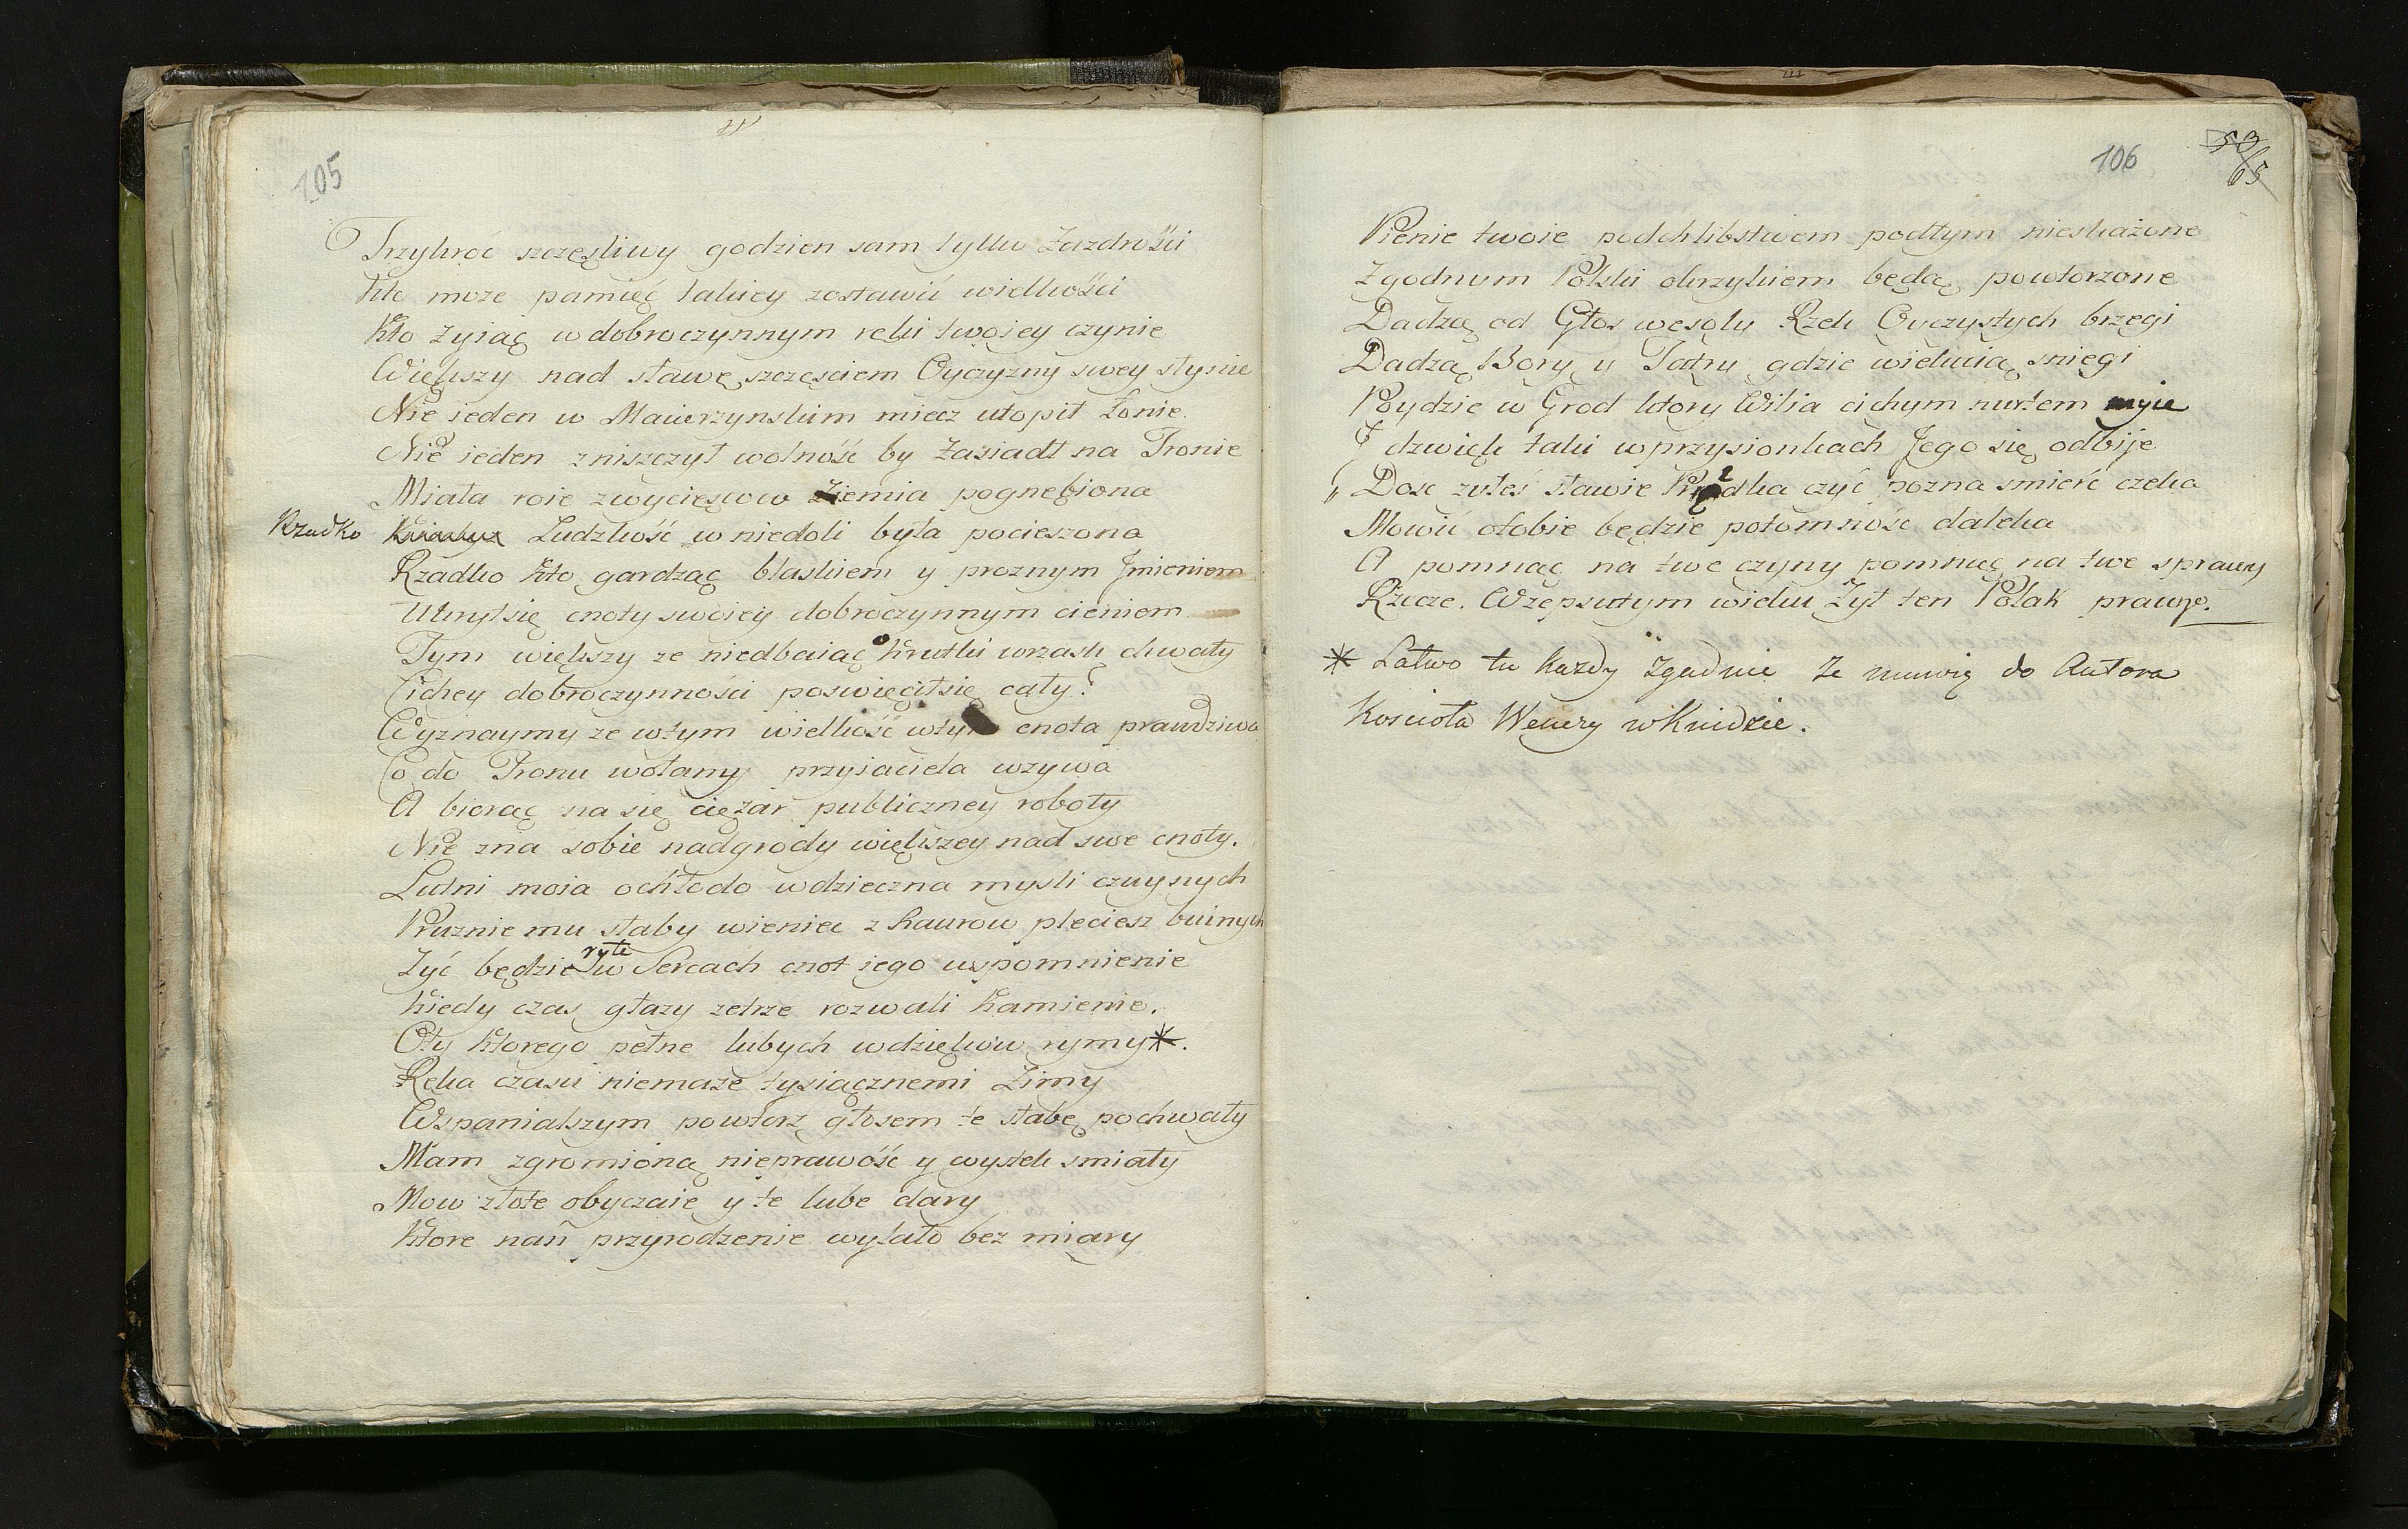 105
Trzykroć szczęsliwy godzien sam tylku Zazdrości
Kto moze pamięć takiey zostawić wielkości
Kto żyiąc w dobroczynnym ręki twoiey czynie
Większy nad sławę szczęsciem Oyczyzny swey słynie
Nie ieden w Macierzynskim miecz utopił Łonie.
Nie ieden zniszczył wolność by Zasiadł na Tronie
Miała roie zwycięscow Ziemia pognębiona
Rzadko Ludzkość w niedoli była pocieszona
Rzadko Kto gardząc blaskiem y proznym Jmieniem
Ukrył się cnoty swoiey dobroczynnym cieniem
Tym większy ze niedbaiąc o Krutki wrzask chwały
Cichey dobroczynności poswięcił się cały?
Wyznaymy ze w tym wielkość w tym cnota prawdziwa
Co do Tronu wołany przyiaciela wzywa
A biorąc na się ciężar publiczney roboty
Nie zna sobie nadgrody większey nad swe cnoty.
Lutni moia ochłodo wdzieczna mysli czuynych
Pruznie mu słaby wieniec z Laurow pleciesz buinych
Żyć będzie ryte w Sercach cnot iego wspomnienie
Kiedy czas głazy zetrze rozwali Kamienie.
O ty Ktorego pełne lubych wdziękow rymy*.
Ręka czasu niemaże tysiącznemi Zimy
Wspanialszym powtorz głosem te słabe pochwały
Mam zgromioną nieprawość y wystek smiały
Mow złote obyczaie y te lube dary
Ktore nań przyrodzenie wylało bez miary
106
50
65
Pienie twoie podchlibstwem podłym nieskażone
Zgodnym Polski okrzykiem będą powtorzone
Dadzą od Głos wesoły Rzek Oyczystych brzegi
Dadzą Bory y Tatry gdzie wiekuią sniegi
Poydzie w Grod ktory Wilia cichym nurtem myie
I dzwięk taki w przysionkach Jego się odbije
„ Dosc zyłeś sławie czyć pozna smierć czeka
Mowić o tobie będzie potomność daleka
A pomnąc na twe czyny pomnąc na twe sprawy
Rzecze. W zepsutym wieku Żył ten Polak prawy.
* Łatwo tu Każdy Zgadnie Ze muwię do Autora
Koscioła Wenery w Knidzie.